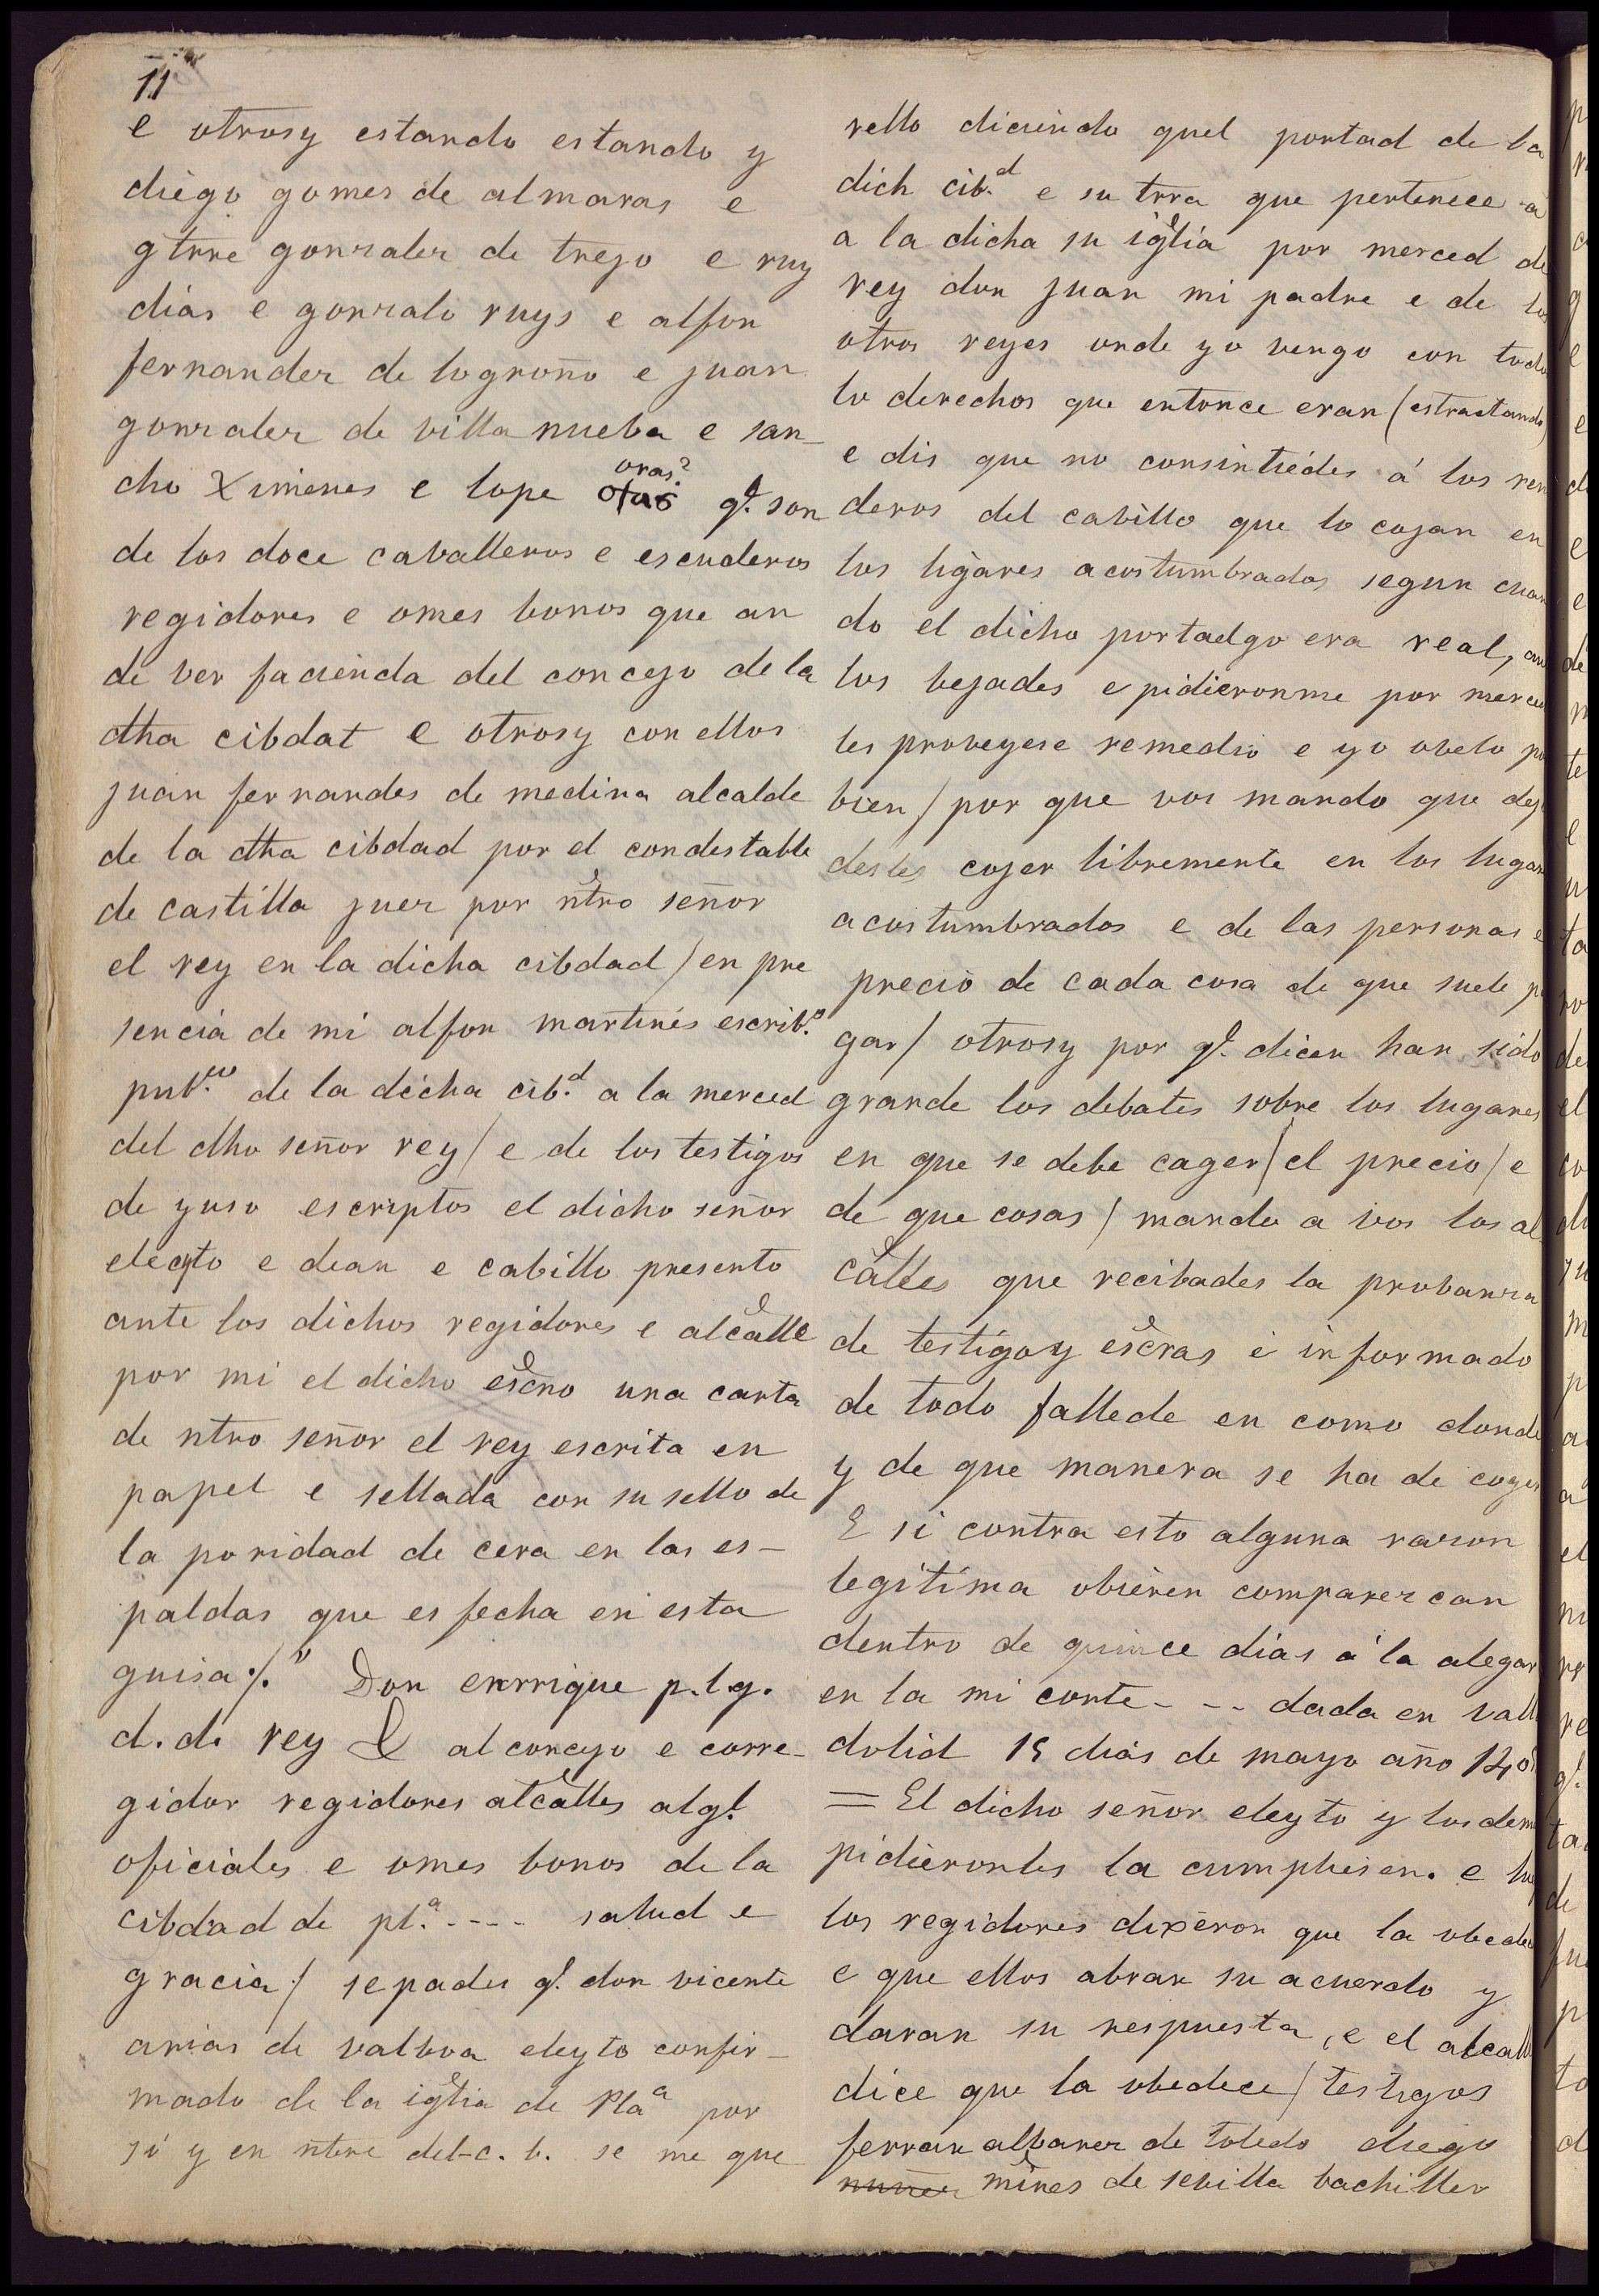 11
e otrosy estando estando y
diego gomes de almaras e
gtrre gonzalez de trejo e ruy
dias e gonzalo ruys e alfon
fernandez de logroño e juan
gonzalez de villa nueba e san-
cho Ximenes e lope oras? otas q.l son
de los doce caballeros e escuderos
regidores e omes bonos que an
de ver facienda del concejo de la
dha cibdat e otrosy con ellos
juan fernandes de medina alcalde
de la dha cibdad por el condestable
de castilla juez por ntro señor
el rey en la dicha cibdad / en pre
sencia de mi alfon martines escrib.o
pub.co de la dicha cib.d a la merced
del dho señor rey / e de los testigos
de yuso escriptos el dicho señor
elegto e dean e cabillo presento
ante los dichos regidores e alcalle
por mi el dicho escno una carta
de ntro señor el rey escrita en
papel e sellada con su sello de
la poridad de cera en las es-
paldas que es fecha en esta
guisa ./." Don enrrique p.l.g.
d. di rey & al concejo e corre-
gidor regidores alcalles algl.
oficiales e omes bonos de la
cibdad de pl.a ---- salud e
gracia / sepades q.l don vicente
arias de valboa eleyto confir-
mado de la iglia de Pla.a por
sí y en nbre del c. b. se me que
rello diciendo quel portad de la
dich cib.d e su trra que pertenece a
a la dicha su iglia por merced de
rey don juan mi padre e de los
otros reyes onde yo vengo con todo
lo derechos que entonce eran (estractando)
e dis que no consintiédes á los ren
deros del cabillo que lo cojan en
los lugares acostumbrados segun cuan
do el dicho portadgo era real,
los bejades e pidieronme por merced
les proveyese remedio e yo obelo por
bien / por que vos mando que dej
desles cojer libremente en los lugar
acostumbrados e de las personas e
precio de cada cosa de que suele pa
gar / otrosy por q.l dicen han sido
grande los debates sobre los lugares
en que se debe cager / el precio / e
de que cosas / mando a vos los al
calles que recibades la probanza
de testigoy escras é informado
de todo fallede en como donde
y de que manera se ha de coger
E si contra esto alguna razon
legitima obieren comparezcan
dentro de quince dias á la alegar
en la mi corte - -- dada en vall
dolid 15 dias de mayo año 140
= El dicho señor eleyto y los dem
pidieronles la cumpliesen. e lu
los regidores dixeron que la obedec
e que ellos abran su acuerdo y
daran su respuesta, e el alcall
dice que la obedece / testigos
ferran albarez de toledo diego
nuñez mines de sevilla bachiller